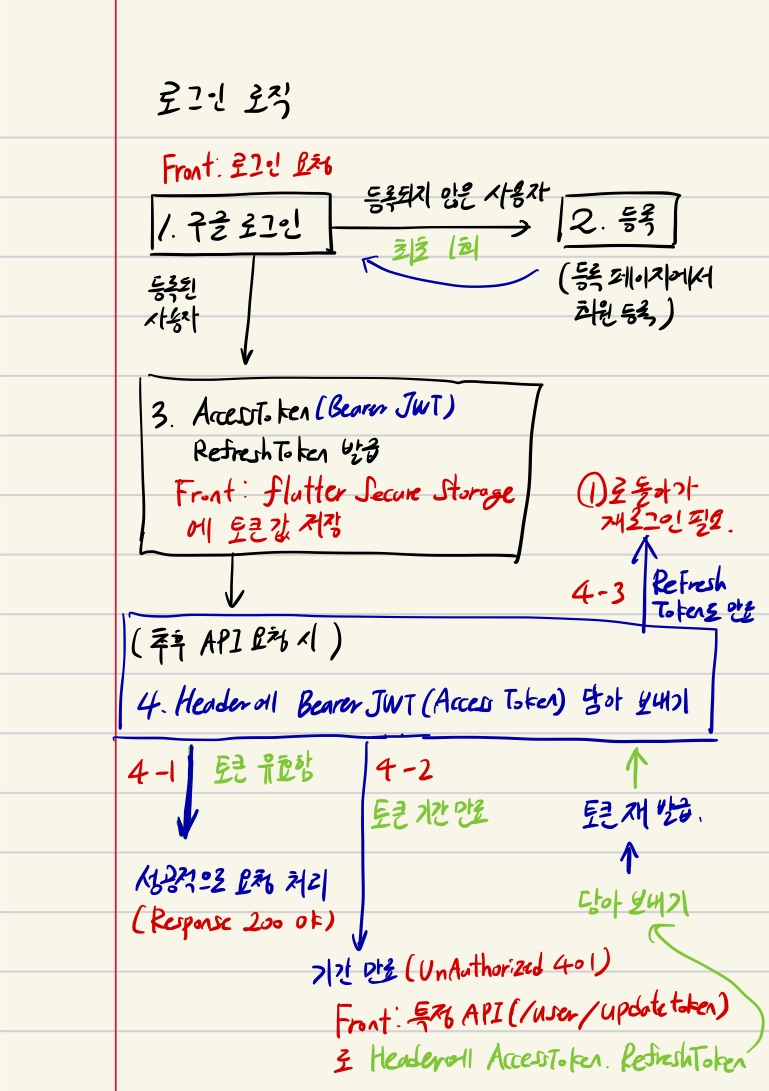 로그인 로직
Front: 로그인 요청
1. 구글 로그인
등록되지 않은 사용자
최초 1회
2. 등록
(등록 페이지에서
회원 등록)
등록된
사용자
3. AccessToken (Bearer JWT)
RefreshToken 발급
Front: flutter Secure Storage
에 토큰값 저장
①로 돌아가
재로그인 필요.
4-3
Refresh
Token도 만료
(추후 API 요청 시)
4. Header에 Bearer JWT (Access Token) 담아 보내기
4-1
토큰 유효함
4-2
토큰 기간 만료
성공적으로 요청 처리
(Response 200 야)
토큰 재 발급.
담아 보내기
기간 만료 (UnAuthorized 401)
Front: 특정 API (/user/updatetoken)
로 Header에 AccessToken. RefreshToken